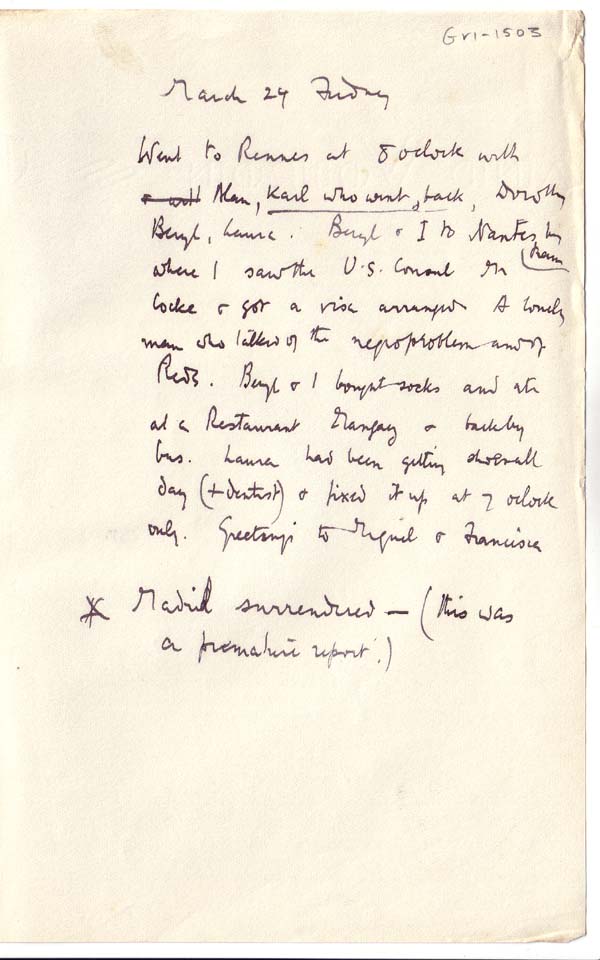 GV1-1503
March 24 Friday
Went to Rennes at 8 oclock with
Alan, Karl who went back, Dorothy
Beryl, Laura. Beryl & I to Nantes, by
train
where I saw the U.S. Consul Mr
Cocke & got a visa arranged. A lonely
man who talked of the negro problem and of
Reds. Beryl & I bought socks and ate
at a Restaurant Mangay & back by
bus. Laura had been getting shoes all
day (+ dentist) & fixed it up at 7 oclock
only. Greetings to Miguel & Francisca
* Madrid surrendered — (this was
a premature report.)